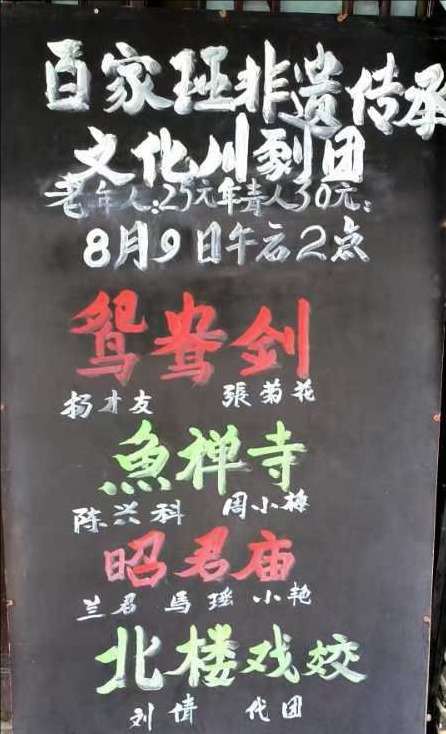 百家班非遗传承
文化川劇团
老年人:25元年青人30元:
8月9日午后2点
鸳鸯剑
杨才友 張菊花
魚禅寺
陈兴科 周小梅
昭君庙
兰君 馬瑶 小艳
北楼戏姣
刘倩 代团